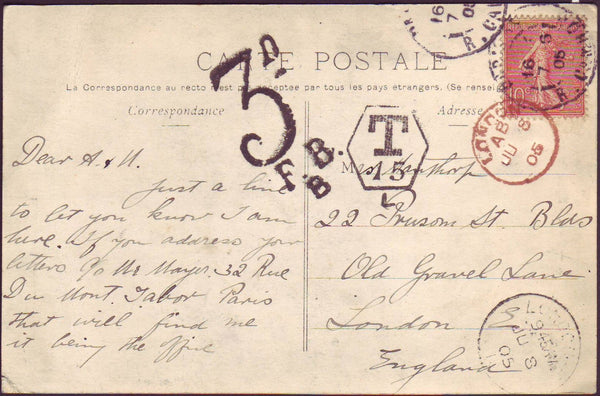 CARTE POSTALE
La Correspondance au recto n'est pas acceptée par tous les pays étrangers. (Se renseigner
Correspondance
Adresse
3D
F.B.
B
T
15
10
16
7
05
R.
16
7
05
LONDON
AB
JU 8
05
Dear A & U.
Just a line
to let you know I am
here. If you address your
letters c/o Mr Mayer. 32 Rue
Du Mont Tabor Paris
that will find me
it being the office
Mrs Winthorp
22 Prusom St. Blds
Old Gravel Lane
London E
England
LONDON
JU 8
05